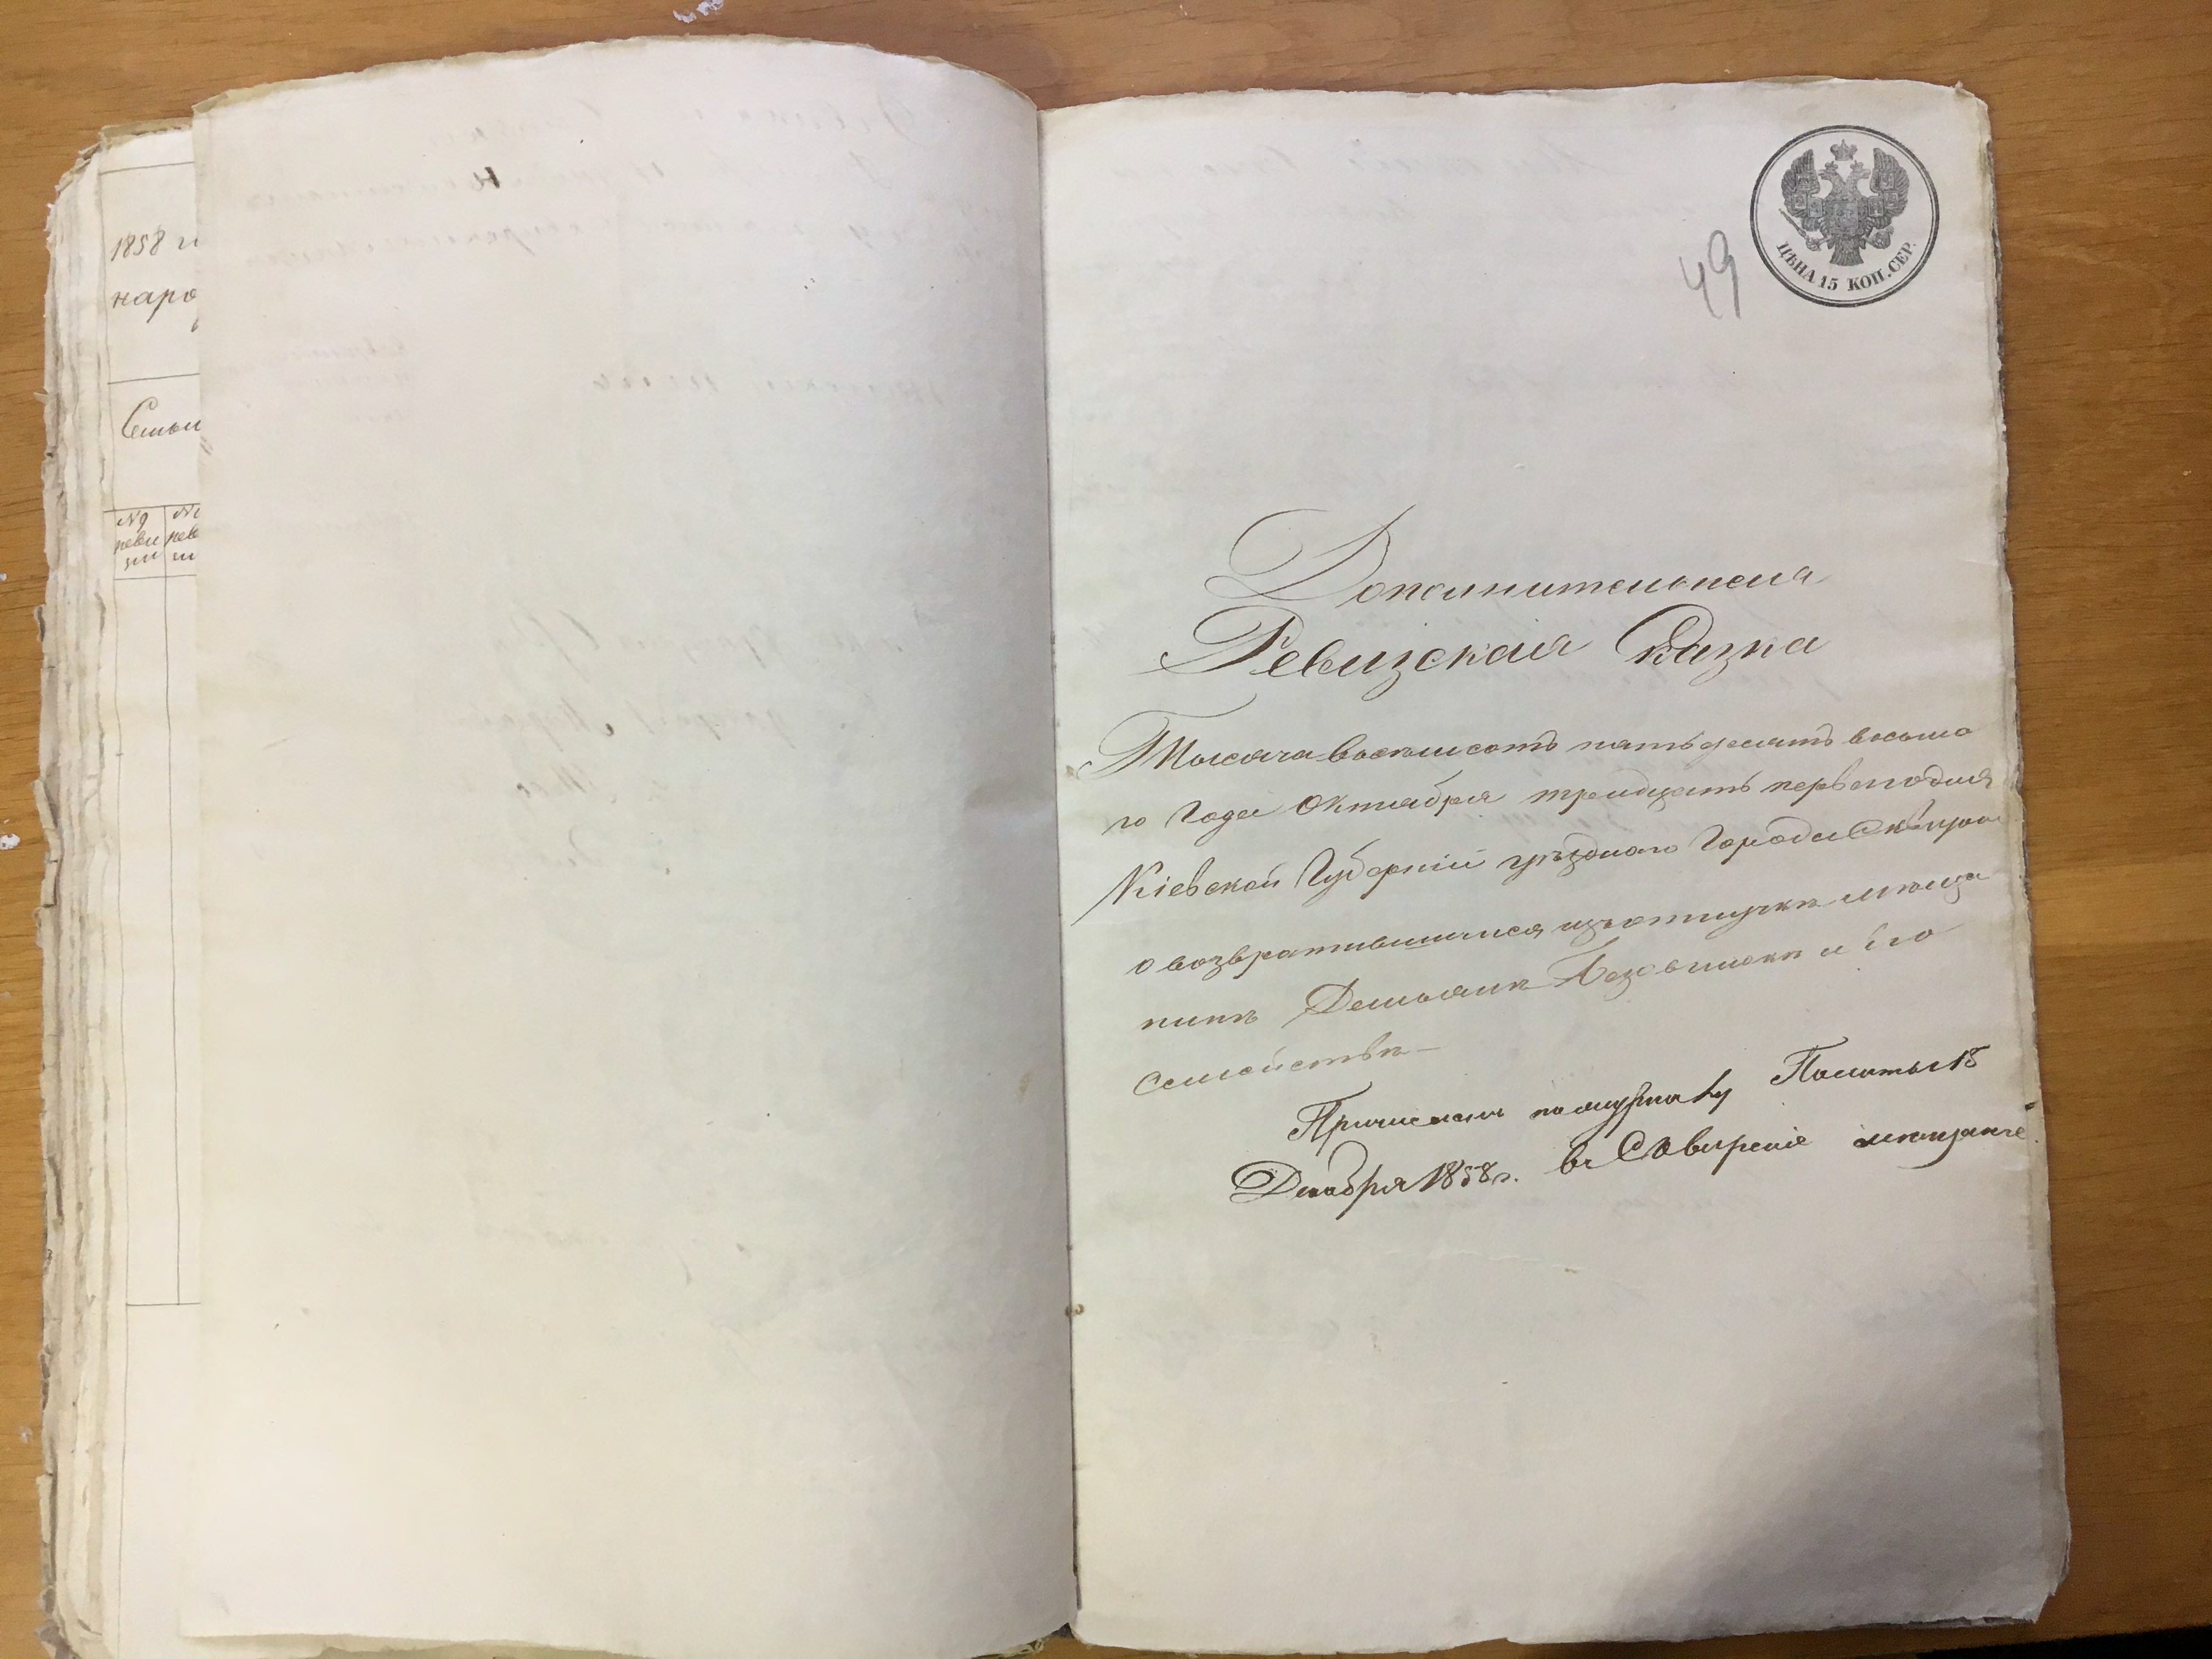 1858 го
наро
Семьи
№ 9 реви зіи
№ рев іи
ЦѢНА 15 КОП. СЕР.
49
Дополнительная
Ревизская Сказка
Тысяча восемьсотъ пятьдесятъ восьма
го Года Октября тридцать первого дня
Кіевской Губерніи уѣзднаго Города Сквиры
о возвратившимся изъ отлучки мѣща
нинѣ Демьянѣ и его
семействѣ
Причислен по журналу Палаты 18
Декабря 1858 г. въ Сквирскіе мещане.